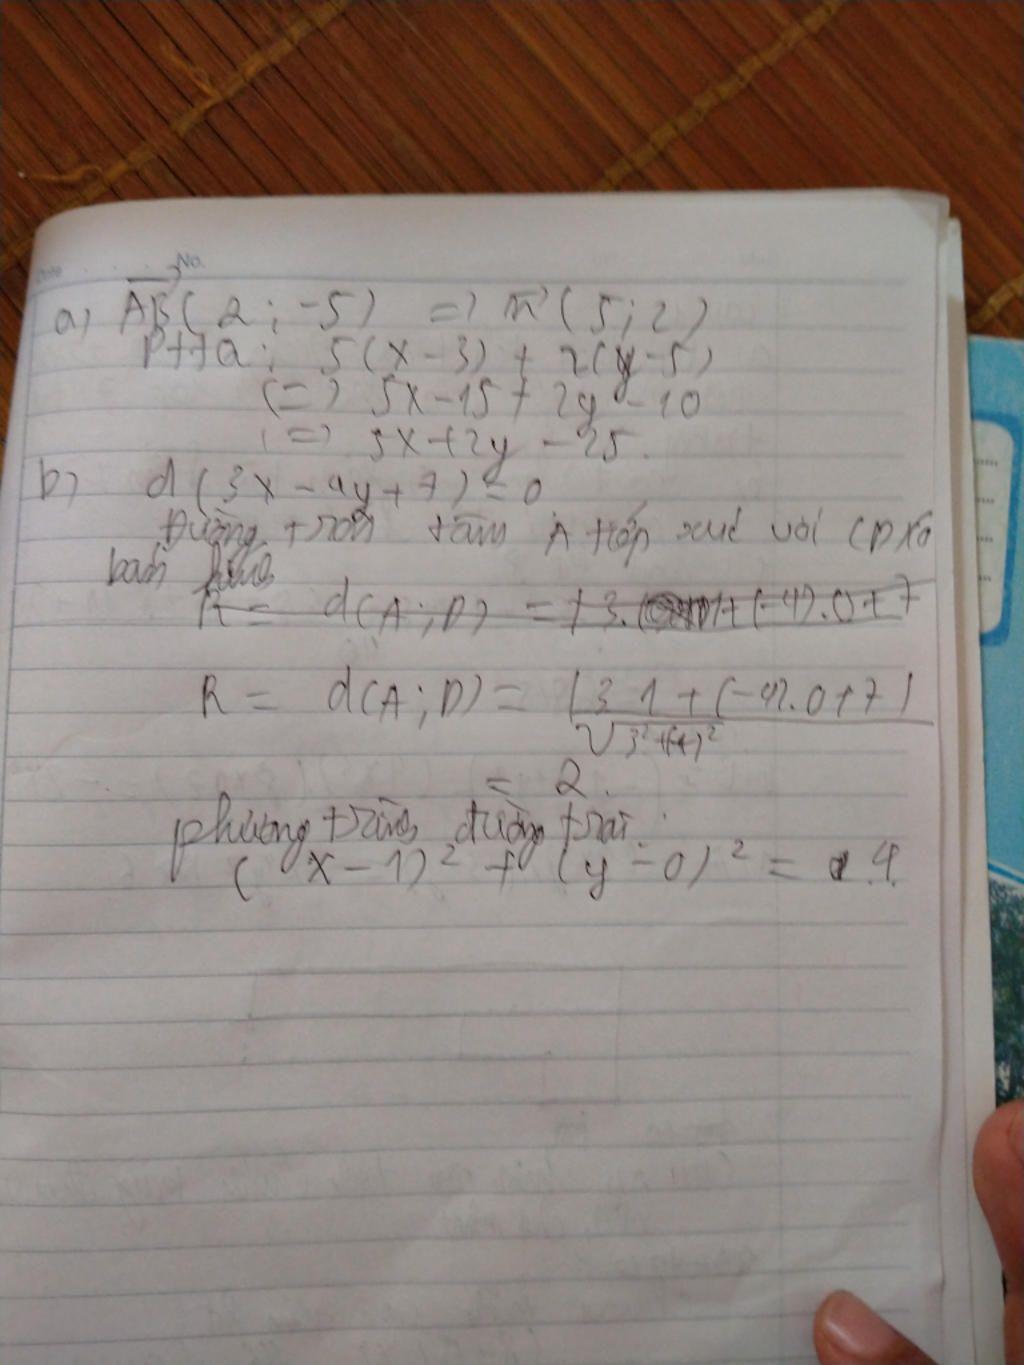 Date No.
a) AB→ (2; -5) => n→ (5; 2)
Ptta: 5(x-3) + 2(y-5)
(=) 5x-15+2y-10
(=) 5x+2y-25.
b) d(3x-4y+7)=0
Đường tròn tâm A tiếp xúc với (D) có
bán kính
R = d(A;D) = |3. 1+(-4).0+7
R = d(A;D) = |3.1+(-4).0+7| / √3²+(-4)²
= 2.
phương trình đường tròn:
(x-1)² + (y-0)² = 4.